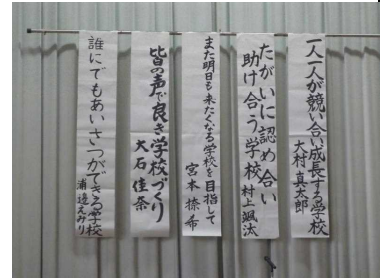 一人一人が競い合い成長する学校
大村真太郎
たがいに認め合い
助け合う学校
村上颯汰
また明日も来たくなる学校を目指して
宮本捺希
皆の声で良き学校づくり
大石佳奈
誰にでもあいさつができる学校
浦邉えみり